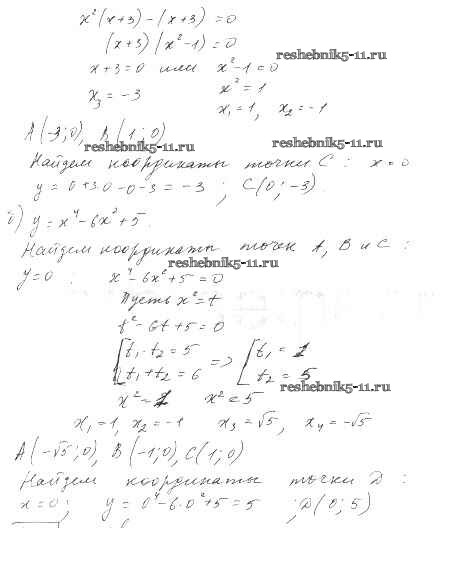 x²(x+3)-(x+3)=0
(x+3)(x²-1)=0
reshebnik5-11.ru
x+3=0 или x²-1=0
x₃=-3 x²=1
x₁=1, x₂=-1
A(-3;0), B(1;0)
reshebnik5-11.ru reshebnik5-11.ru
Найдем координаты точки C: x=0
y=0+3·0-0-3=-3; C(0;-3).
б) y=x⁴-6x²+5.
Найдем координаты точек A, B и C:
reshebnik5-11.ru
y=0: x⁴-6x²+5=0
Пусть x²=t
t²-6t+5=0
[t₁·t₂=5 => [t₁=1
[t₁+t₂=6 [t₂=5
reshebnik5-11.ru
x²=1 x²=5
x₁=1, x₂=-1 x₃=√5, x₄=-√5
A(-√5;0), B(-1;0), C(1;0)
reshebnik5-11.ru
Найдем координаты точки D:
x=0; y=0⁴-6·0²+5=5; D(0;5)